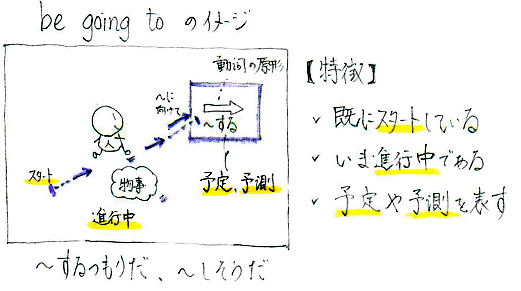 be going to のイメージ
動詞の原形
～に
向けて
～する
スタート
物事
進行中
予定、予測
～するつもりだ、～しそうだ
【特徴】
✓ 既にスタートしている
✓ いま進行中である
✓ 予定や予測を表す